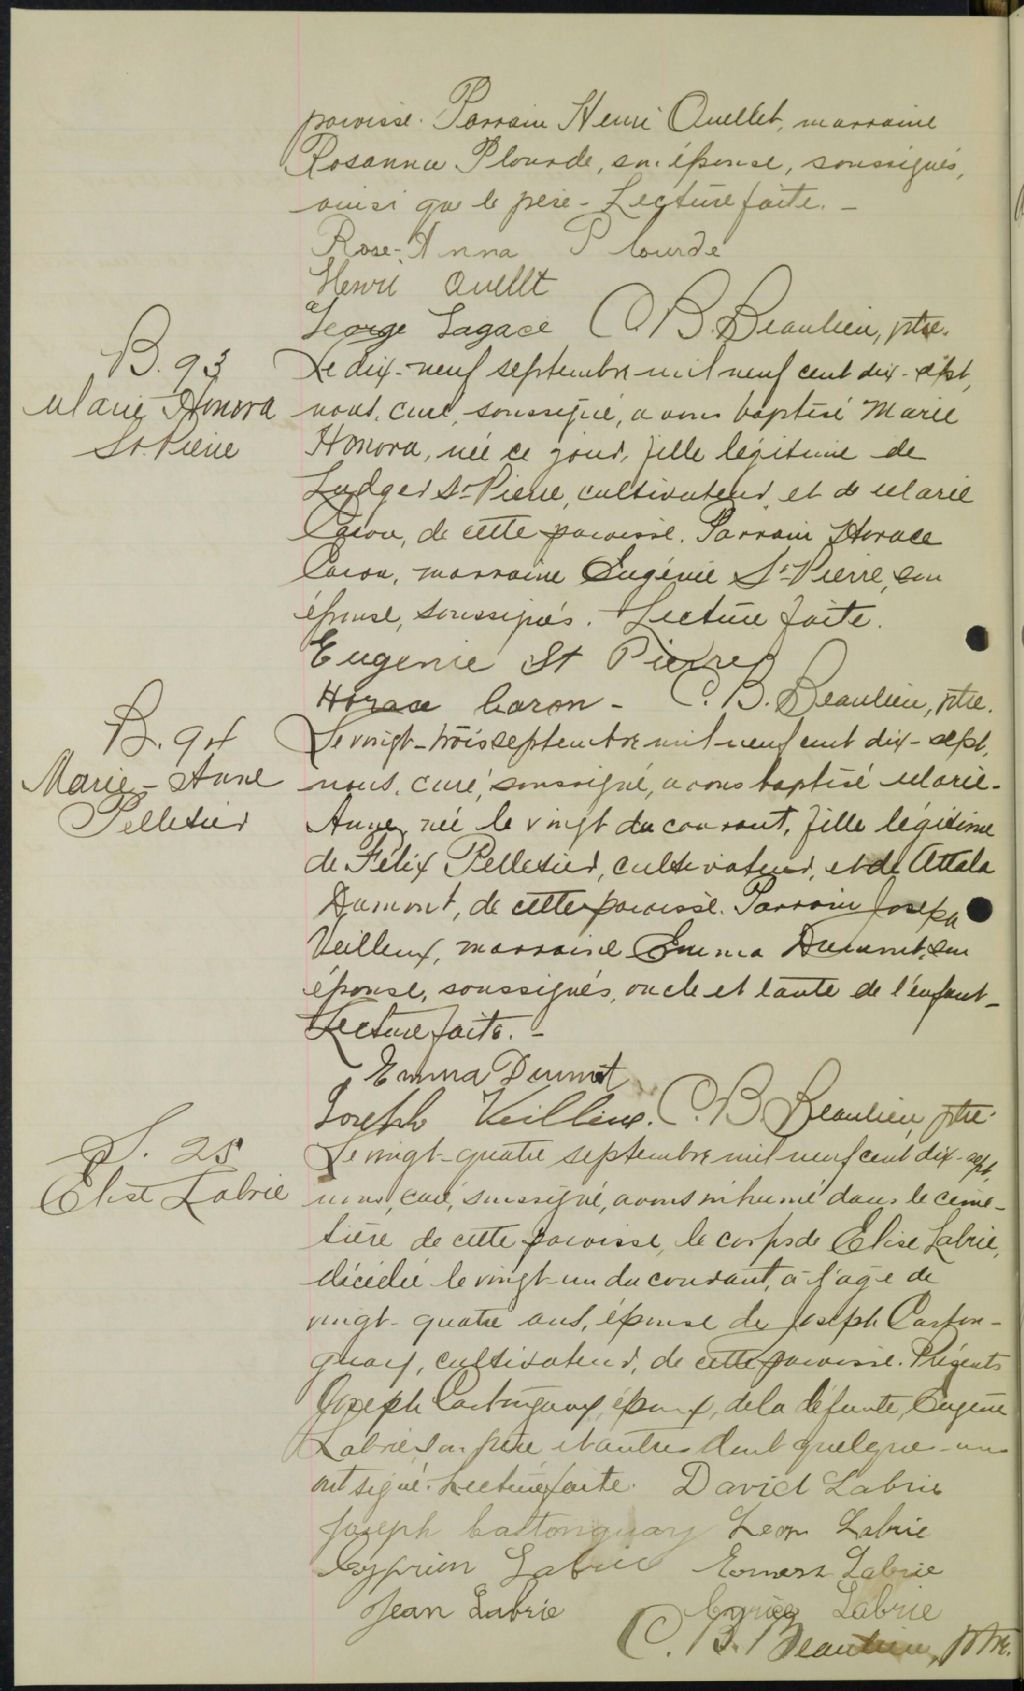 paroisse. Parrain Henri Ouellet, marraine
Rosanna Plourde, son épouse, soussignés,
ainsi que le père - Lecture faite. -
Rose-Anna Plourde
Henri Ouellet
George Lagacé C. B. Beaulieu, ptre.
B. 93
Marie Honora
St. Pierre
Le dix-neuf septembre mil neuf cent dix-sept,
nous, curé, soussigné, avons baptisé Marie
Honora, née ce jour, fille légitime de
Ludger St-Pierre, cultivateur, et de Marie
Caron, de cette paroisse. Parrain Horace
Caron, marraine Eugénie St-Pierre, son
épouse, soussignés. Lecture faite.
Eugenie St Pierre
Horace Caron - C. B. Beaulieu, ptre.
B. 94
Marie-Anne
Pelletier
Le vingt-trois septembre mil neuf cent dix-sept,
nous, curé, soussigné, avons baptisé Marie-
Anne, née le vingt du courant, fille légitime
de Félix Pelletier, cultivateur, et de Attala
Dumont, de cette paroisse. Parrain Joseph
Veilleux, marraine Emma Dumont, son
épouse, soussignés, oncle et tante de l'enfant -
Lecture faite. -
Emma Dumont
Joseph Veilleux. C. B. Beaulieu, ptre.
S. 25
Elise Labrie
Le vingt-quatre septembre mil neuf cent dix-sept,
nous, curé, soussigné, avons inhumé dans le cime-
tière de cette paroisse, le corps de Elise Labrie,
décédée le vingt-un du courant, à l'age de
vingt-quatre ans, épouse de Joseph Caston-
guay, cultivateur, de cette paroisse. Présents
Joseph Castonguay, époux, de la défunte, Eugène
Labrie, son père et autres dont quelques-uns
ont signé. Lecture faite. David Labrie
Joseph Castonguay Leon Labrie
Cyprien Labrie Ernest Labrie
Jean Labrie Labrie
C. B. Beaulieu, ptre.